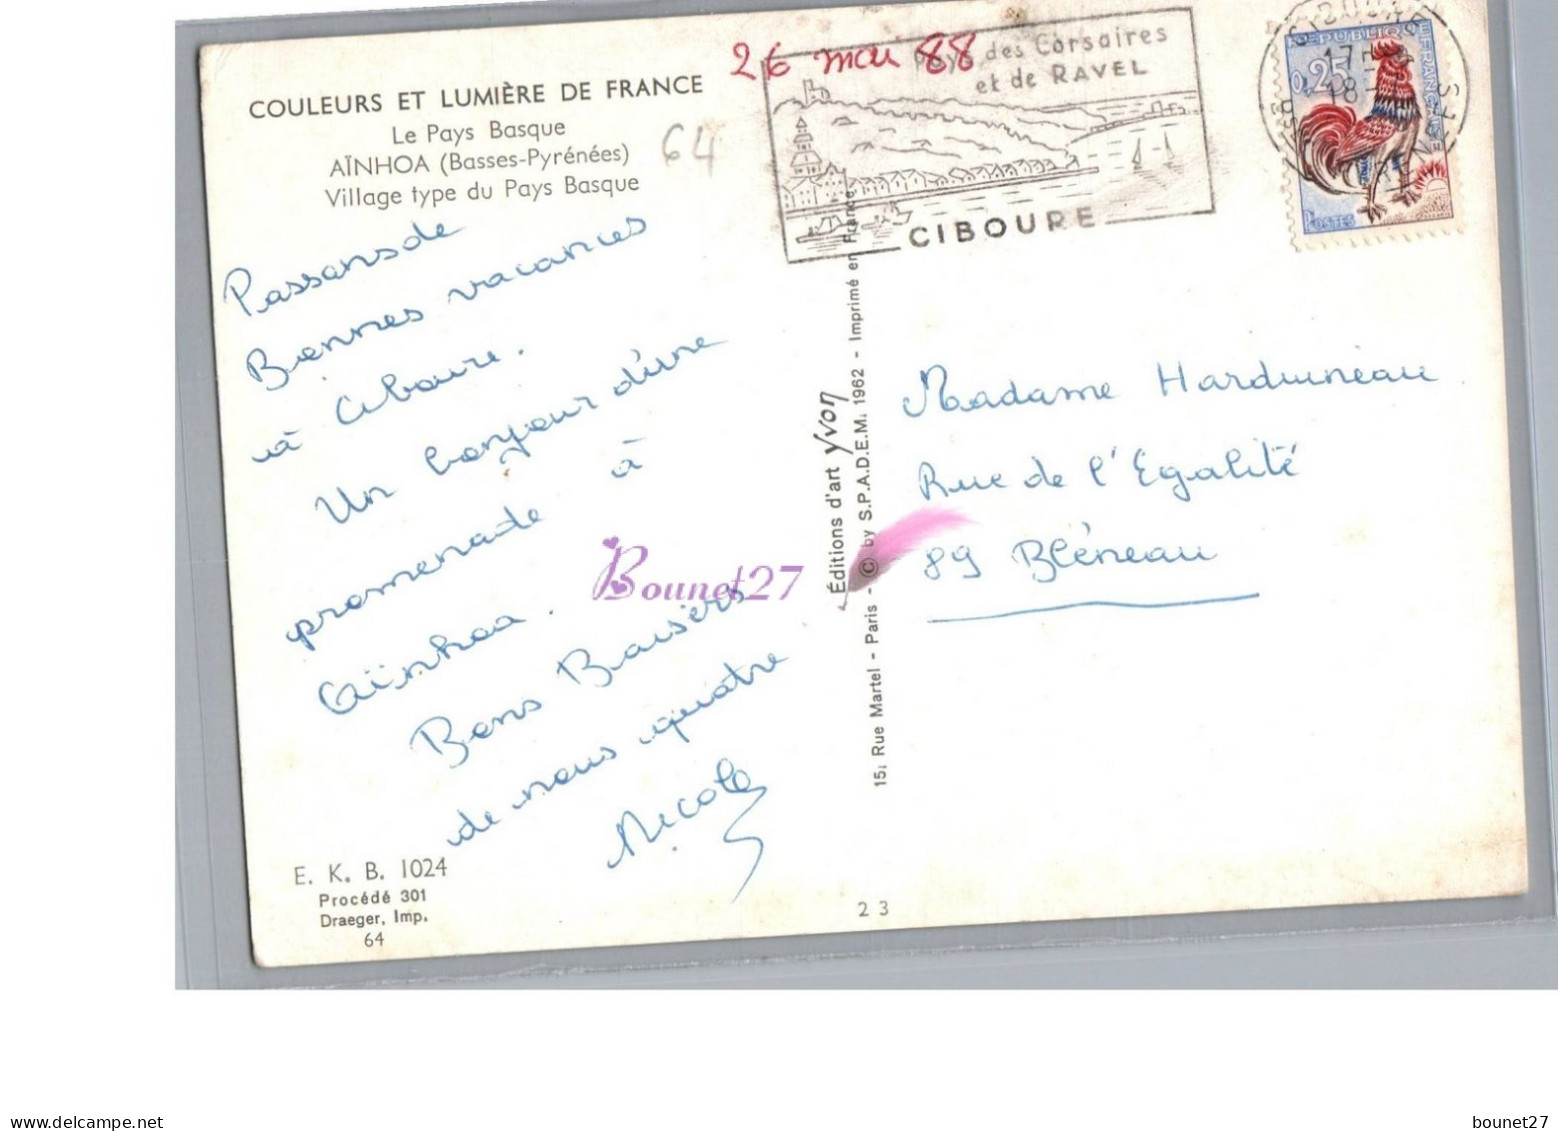 COULEURS ET LUMIÈRE DE FRANCE
Le Pays Basque
AÏNHOA (Basses-Pyrénées)
Village type du Pays Basque
64
26 mai 88
Pays des Corsaires
et de RAVEL
CIBOURE
17
18
RÉPUBLIQUE FRANÇAISE
0,25
POSTES
Passons de
Bonnes vacances
à Ciboure.
Un bonjour d'une
promenade à
Aïnhoa.
Bons Baisers
de nous quatre
Nicole
Bounet27
Éditions d'art Yvon
15, Rue Martel - Paris - © by S.P.A.D.E.M. 1962 - Imprimé en France
Madame Harduineau
Rue de l'Egalité
89 Bléneau
E. K. B. 1024
Procédé 301
Draeger, Imp.
64
23
www.delcampe.net
bounet27